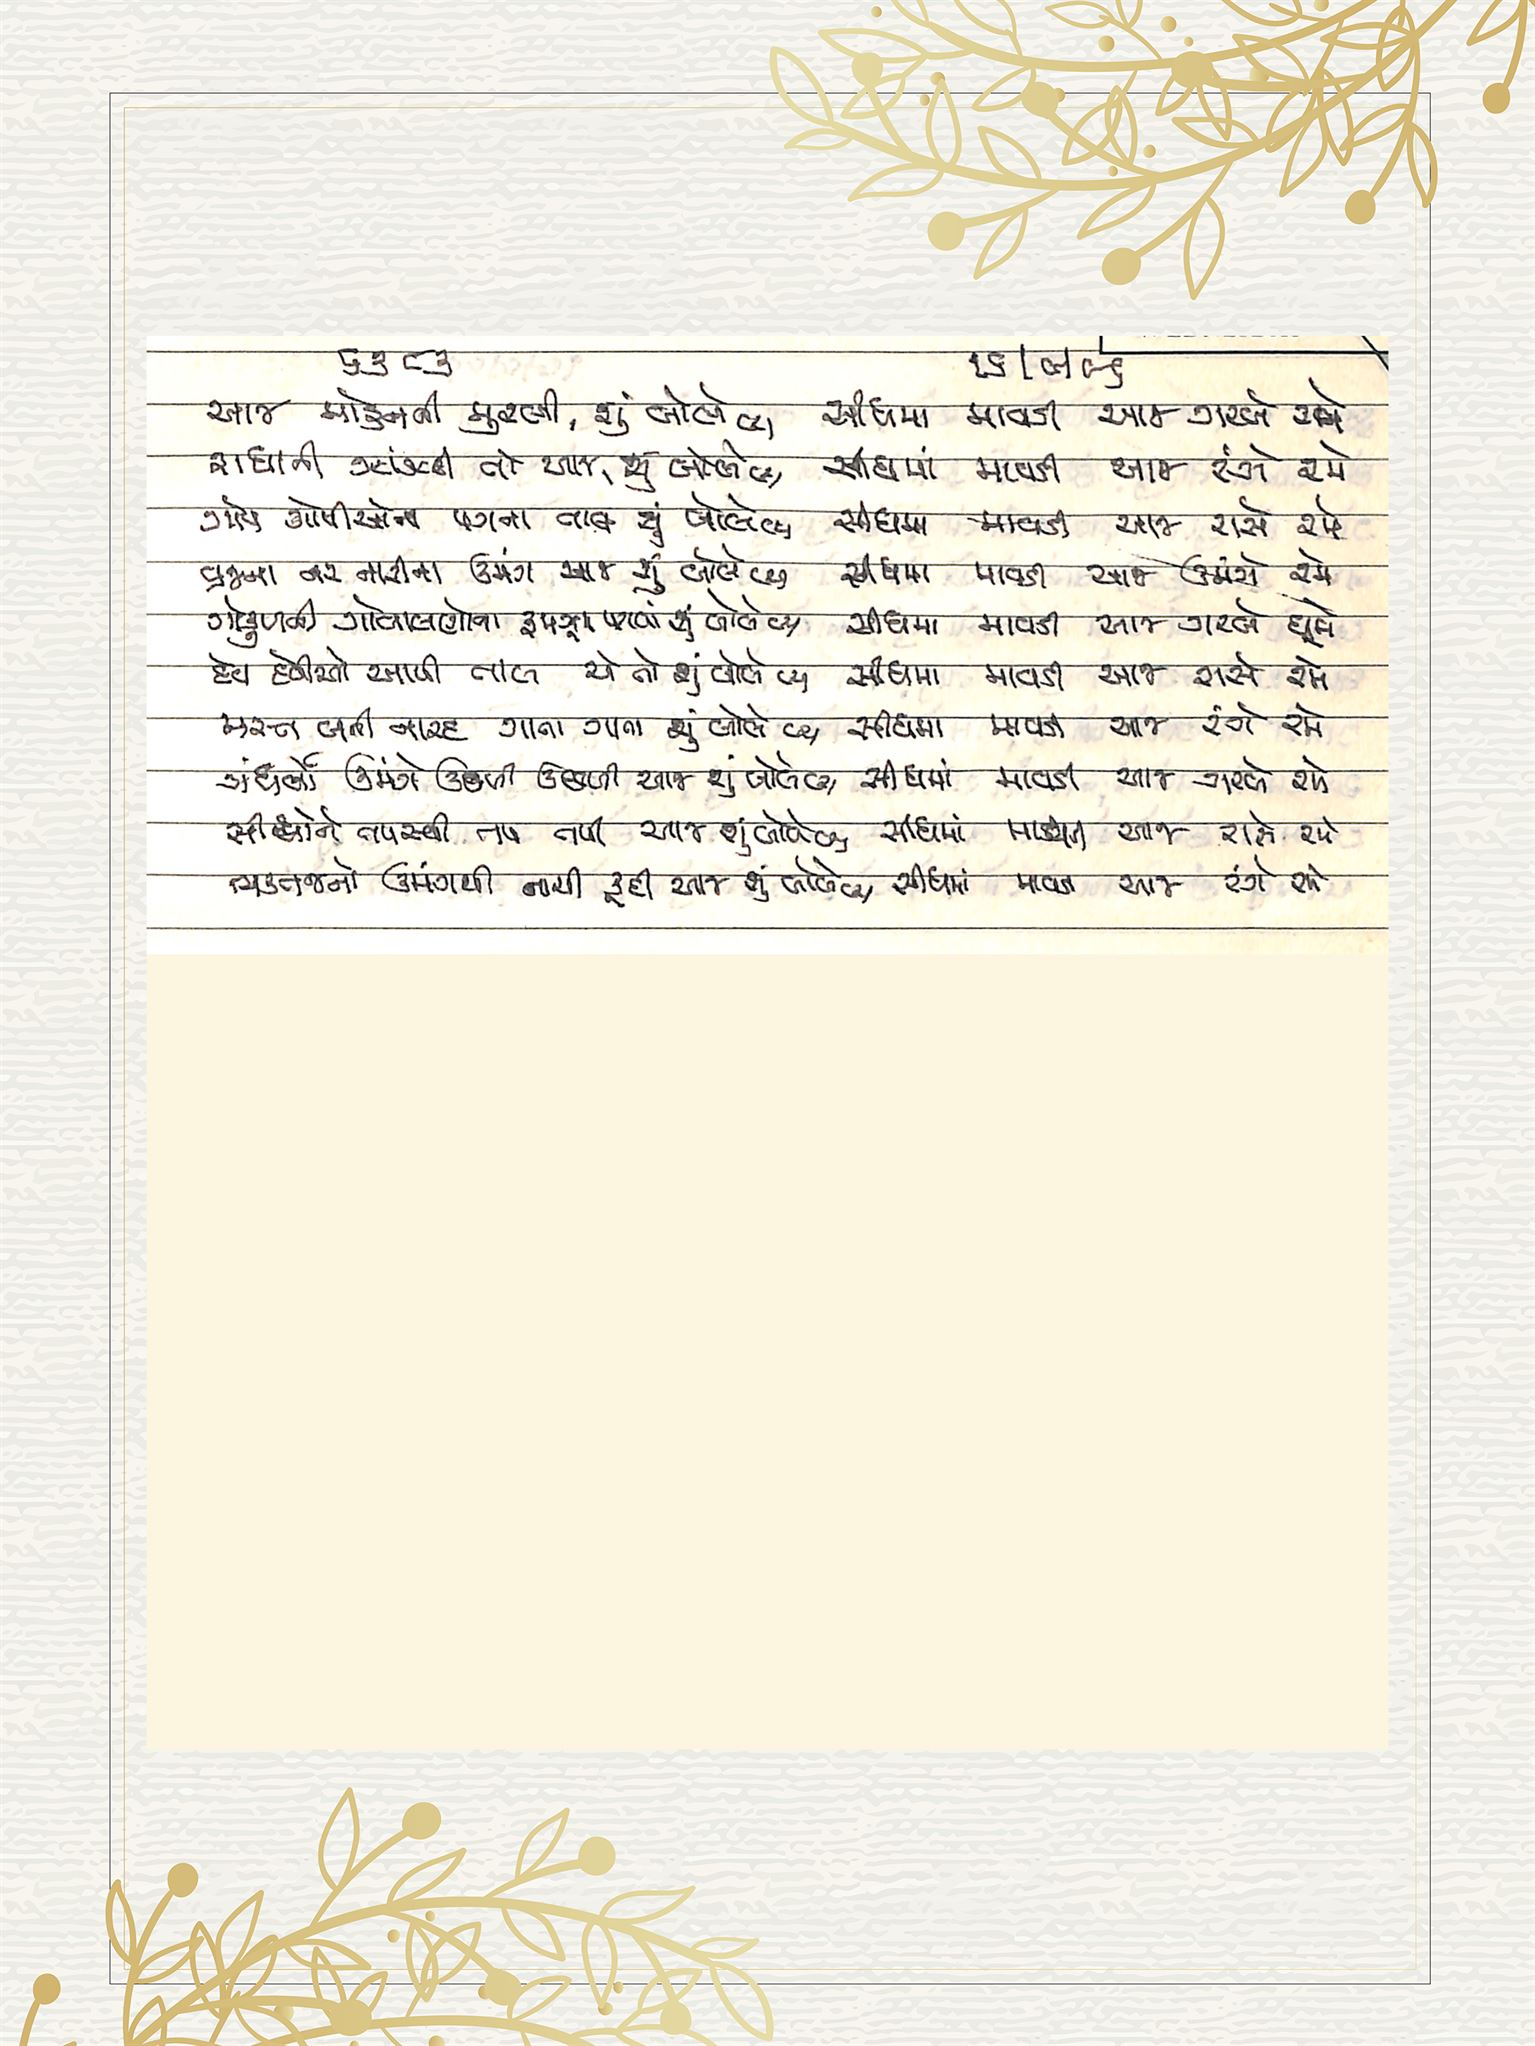 ૬૩૮૩ ૧૬/૭/૮૬
આજ મોહનની મુરલી, શું બોલે છે, સીધમા માવડી આજ ગરબે રમે
રાધાની ઝાંઝરી તો આજ, શું બોલે છે, સીધમાં માવડી આજ રંગે રમે
ગોપ ગોપીઓના પગના નાચ શું બોલે છે, સીધમા માવડી આજ રાસે રમે
વ્રજના નર નારીના ઉમંગ આજ શું બોલે છે, સીધમા માવડી આજ ઉમંગે રમે
ગોકુળની ગોવાલણોના શું બોલે છે, સીધમા માવડી આજ ગરબે ઘૂમે
દેવ દેવીઓ આપી તાલ એ તો શું બોલે છે, સીધમા માવડી આજ રાસે રમે
મસ્ત બની નારદ ગાના ગાતા શું બોલે છે, સીધમા માવડી આજ રંગે રમે
ગંધર્વો ઉમંગે ઉછળી ઉછળી આજ શું બોલે છે, સીધમાં માવડી આજ ગરબે રમે
સીધ્ધોને તપસ્વી તપ તપી આજ શું બોલે છે, સીધમાં માવડી આજ રાસે રમે
ભક્તજનો ઉમંગથી નાચી કૂદી આજ શું બોલે છે, સીધમાં માવડી આજ રંગે રમે